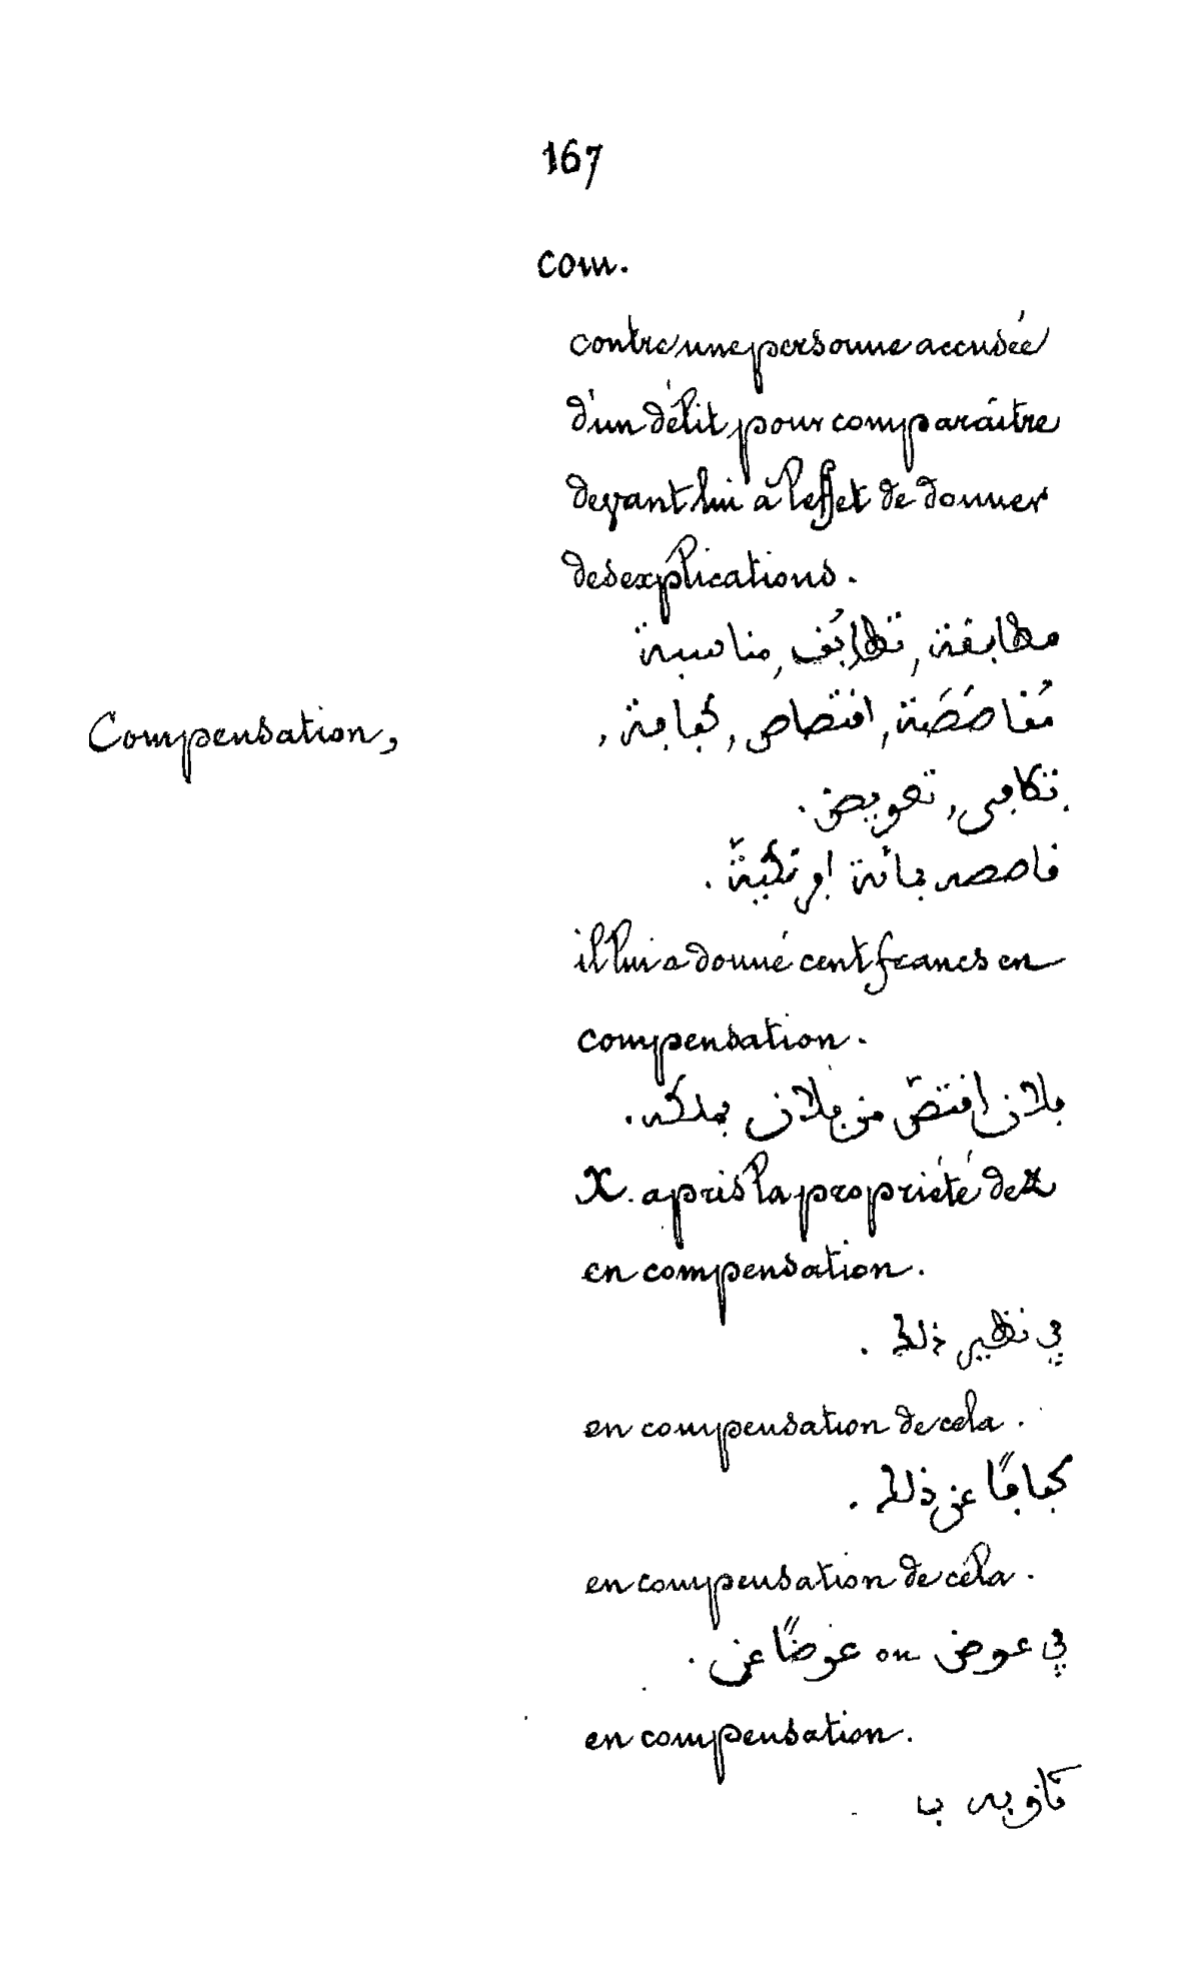 167
com.
contre une personne accusée
d'un délit, pour comparaître
devant lui à l'effet de donner
des explications.
مطابقة, تطابُق, مناسبة
Compensation, مُقاصَصَة, اقتصاص, كفاية,
تكافى, تعويض.
قاصصه بمائة افرنكيةّ.
il lui a donné cent francs en
compensation.
فلان اقتصّ من فلان بملكه.
X. a pris la propriété de Z
en compensation.
في نظير ذلك.
en compensation de cela.
كفافًا عن ذلك.
en compensation de cela.
في عوض ou عوضًا عن.
en compensation.
ب